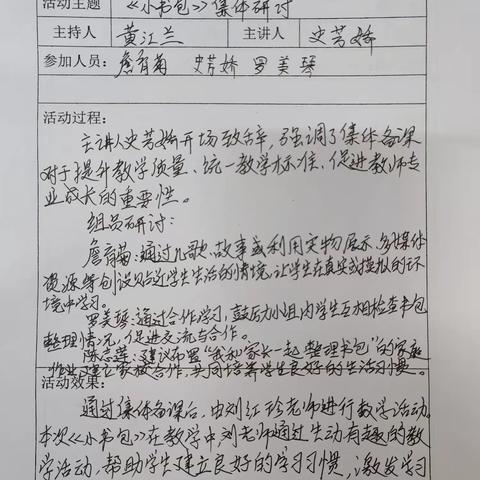 活动主题 《小书包》集体研讨
主持人 黄江兰 主讲人 史芳娇
参加人员： 詹育菊 史芳娇 罗美琴
活动过程：
主讲人史芳娇开场致辞，强调了集体备课
对于提升教学质量、统一教学标准、促进教师专
业成长的重要性。
组员研讨：
詹育菊：通过儿歌、故事或利用实物展示、多媒体
资源等创设贴近学生生活的情境，让学生在真实或模拟的环
境中学习。
罗美琴：通过合作学习，鼓励小组内学生互相检查书包
整理情况，促进交流与合作。
建议布置“我和家长一起整理书包”的家庭
作业，建立家校合作，共同培养学生良好的生活习惯。
活动效果：
通过集体备课后，由刘红珍老师进行教学活动。
本次《小书包》在教学中，刘老师通过生动有趣的教
学活动，帮助学生建立良好的学习习惯，激发学习